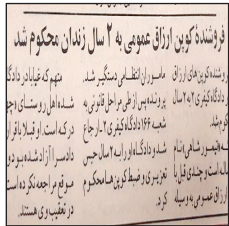 فروشندهٔ کوپن ارزاق عمومی به ۲ سال زندان محکوم شد
فروشنده کوپن های ارزاق
دادگاه کیفری ۲ به ۲ سال
شد.
قیصور شاهی بنام
سال است و چندی قبل با
ارزاق عمومی به وسیله
ماموران انتظامی دستگیر شد.
پرونده پس از طی مراحل قانونی به
شعبه ۱۶۶ دادگاه کیفری ۲ ارجاع
شد و دادگاه او را به ۲ سال حبس
تعزیری و ضبط کوپن ها محکوم
کرد.
متهم که غیابا در دادگاه
شده اهل روستای
درکه است، او قبلا با قرار
دادسرا آزاد شده بود
موقع مراجعه نکرده است
در تعقیب وی هستند.